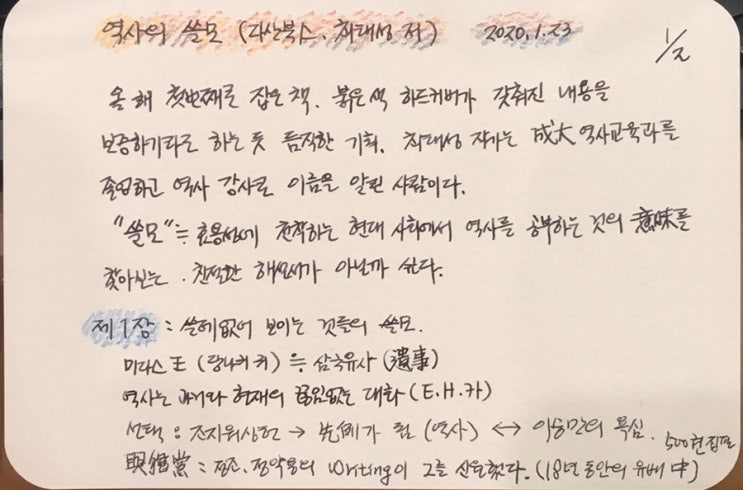 역사의 쓸모 (다산북스. 최태성 저) 2020.1.23 1/2
올해 첫번째로 잡은 책. 붉은색 하드커버가 갖춰진 내용을
보증하기라도 하는 듯 듬직한 기획. 최태성 작가는 成大 역사교육과를
졸업하고 역사 강사로 이름을 알린 사람이다.
"쓸모"≒효용성에 천착하는 현대 사회에서 역사를 공부하는 것의 意味를
찾아보는. 친절한 해설서가 아닌가 싶다.
제1장 : 쓸데없어 보이는 것들의 쓸모.
미다스 王 (당나귀 귀) ≒ 삼국유사 (遺事)
역사는 과거와 현재의 끊임없는 대화 (E.H.카)
선택 : 조지워싱턴 → 先例가 됨 (역사) ↔ 이승만의 욕심.
: 정조. 정약용의 writing이 그를 신원했다. (18년 동안의 유배 中) 500권 집필